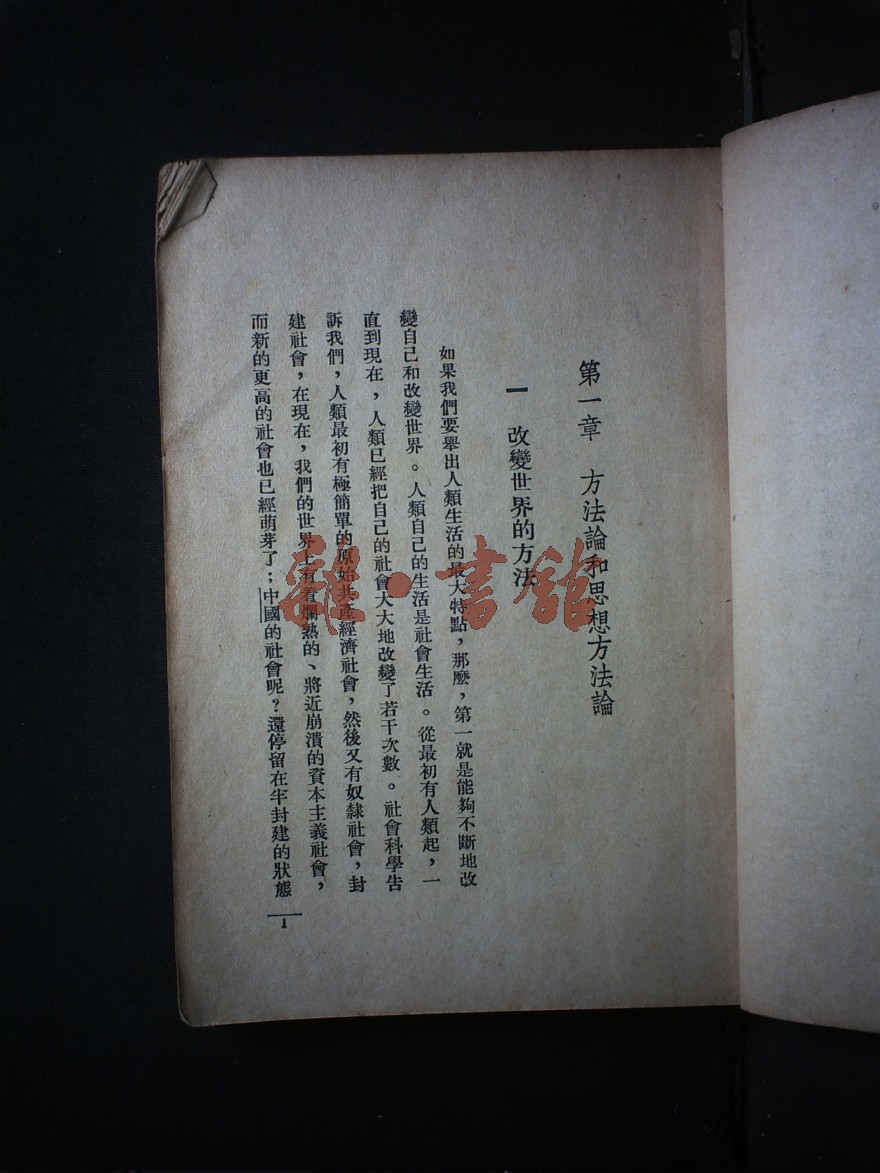 第一章　方法論和思想方法論
一　改變世界的方法
如果我們要舉出人類生活的最大特點，那麼，第一就是能夠不斷地改
變自己和改變世界。人類自己的生活是社會生活。從最初有人類起，一
直到現在，人類已經把自己的社會大大地改變了若干次數。社會科學告
訴我們，人類最初有極簡單的原始共產經濟社會，然後又有奴隸社會，封
建社會，在現在，我們的世界上有着爛熟的、將近崩潰的資本主義社會，
而新的更高的社會也已經萌芽了；中國的社會呢？還停留在半封建的狀態
1
雜·書館